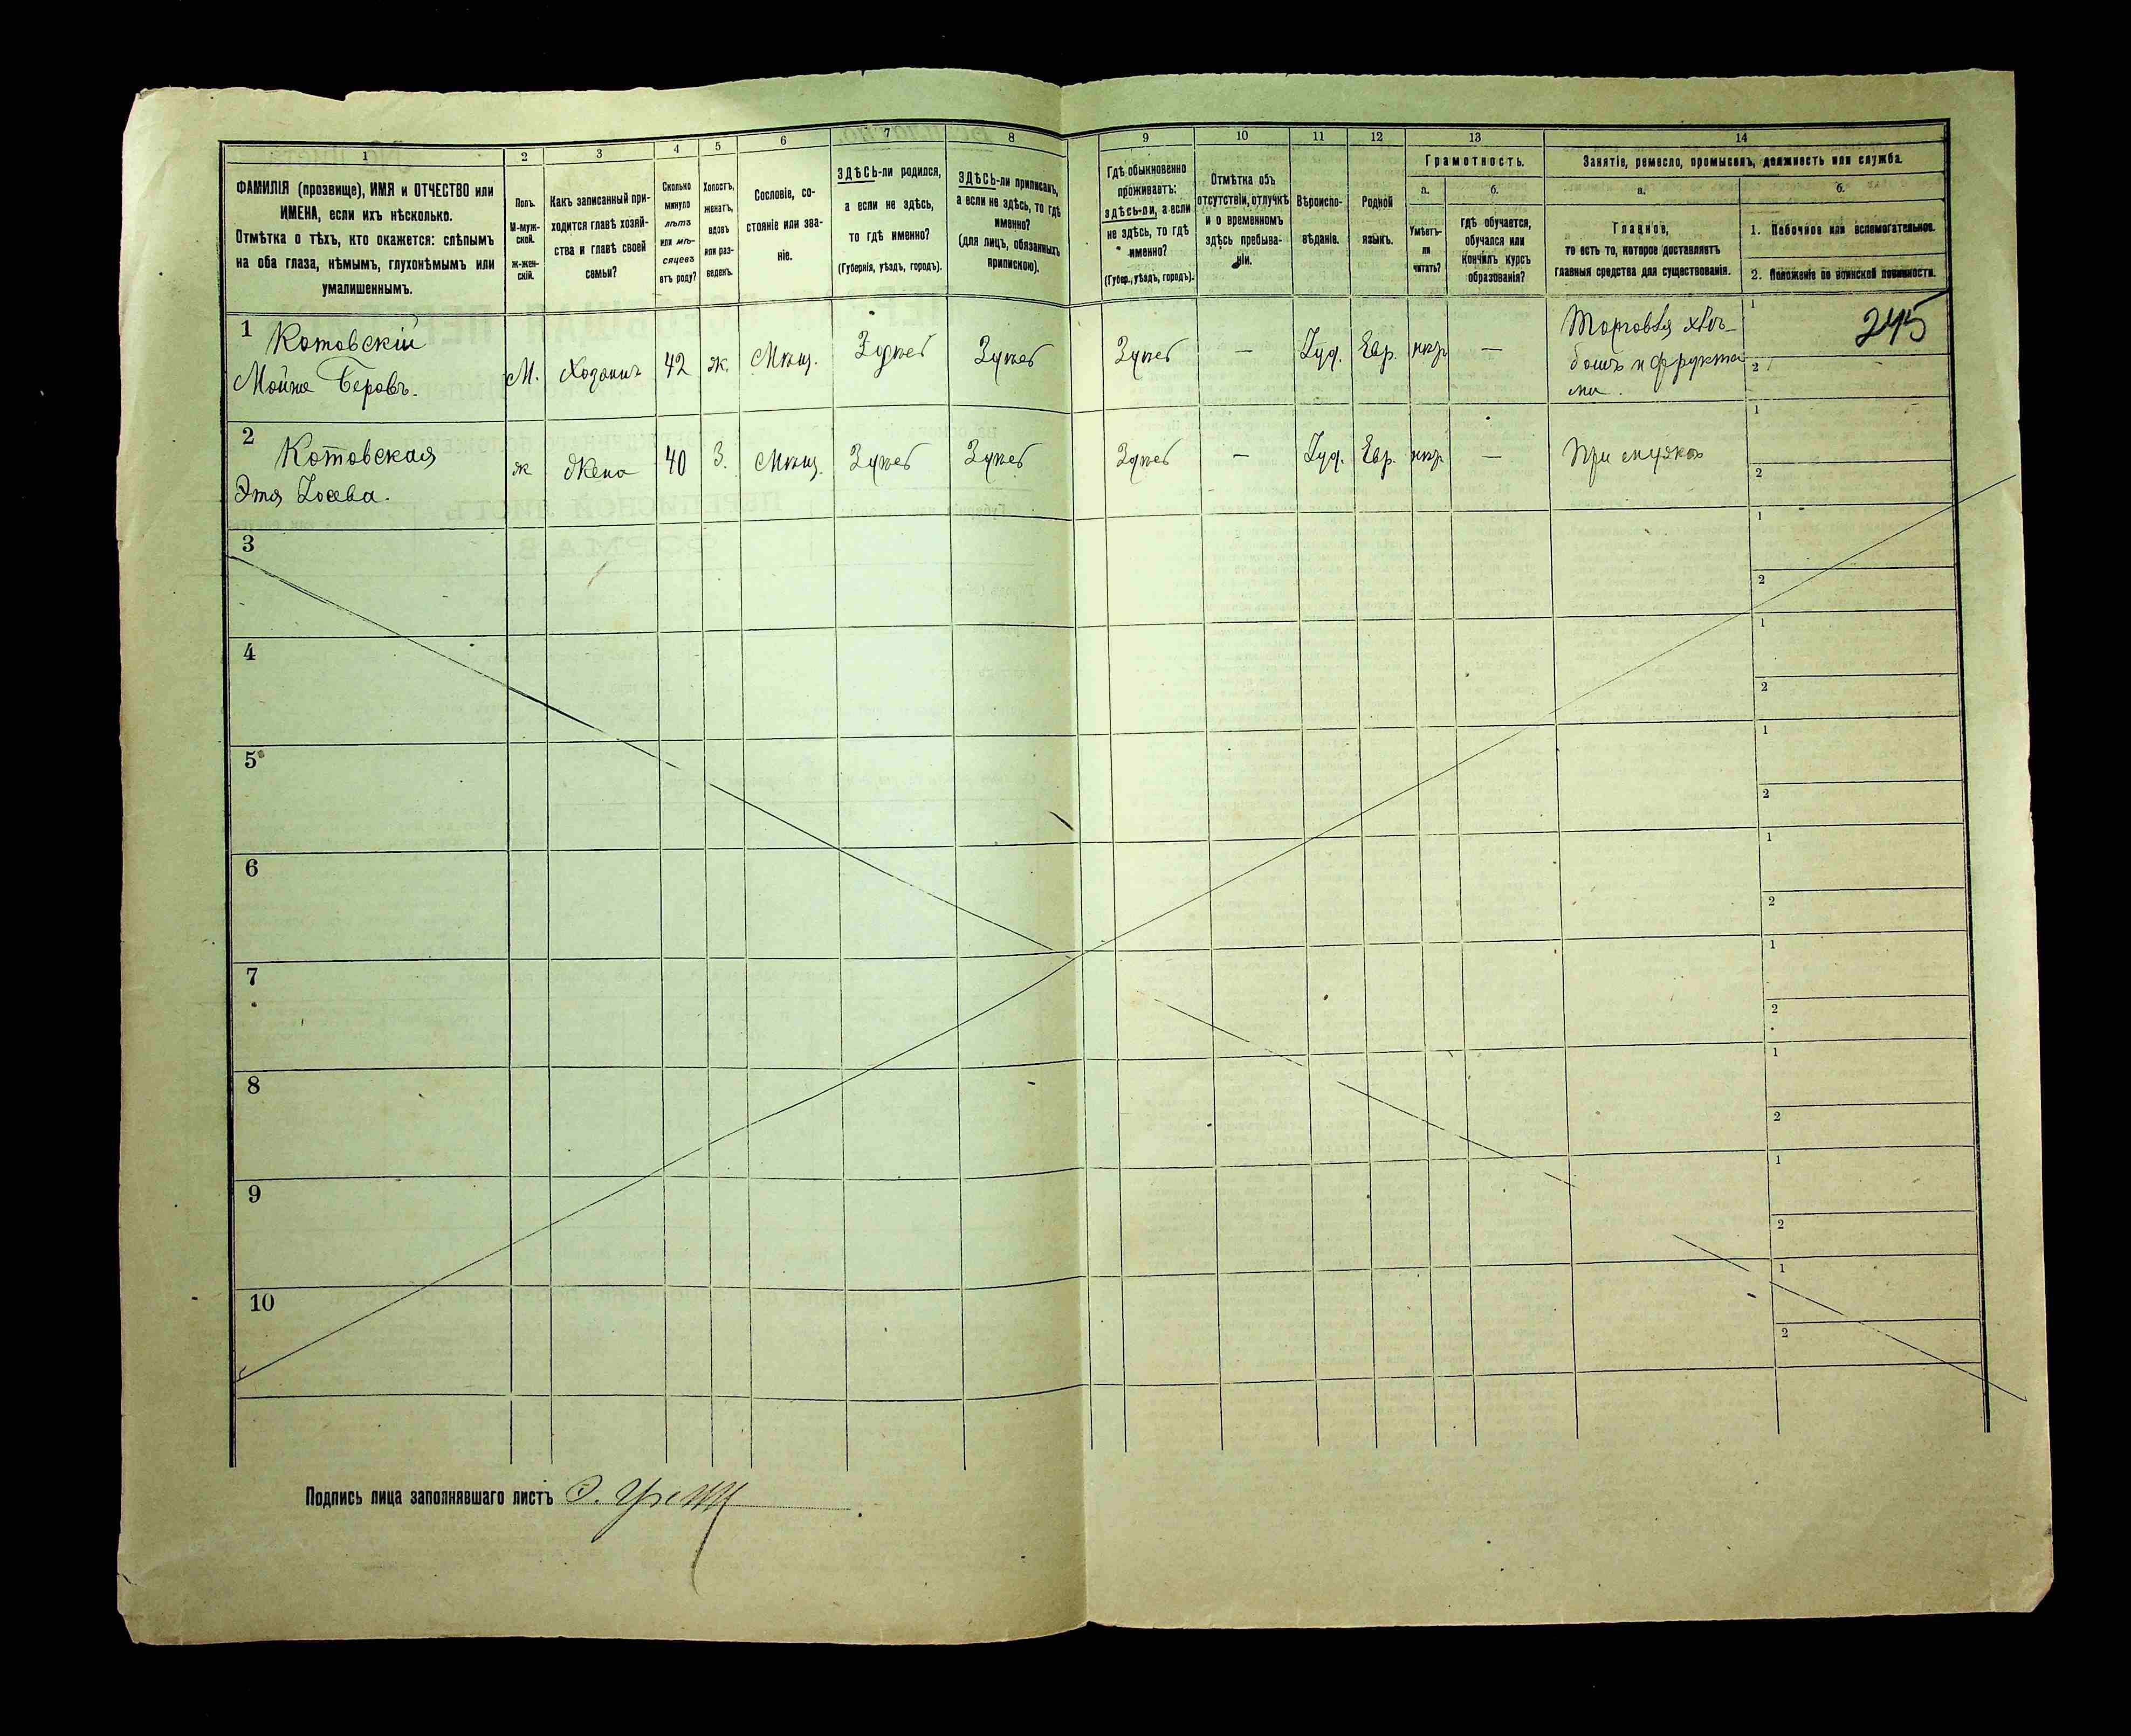 1
2
3
4
5
6
7
8
9
10
11
12
13
14
ФАМИЛІЯ (прозвище), ИМЯ и ОТЧЕСТВО или
ИМЕНА, если ихъ нѣсколько.
Отмѣтка о тѣхъ, кто окажется: слѣпымъ
на оба глаза, нѣмымъ, глухонѣмымъ или
умалишеннымъ.
Полъ.
М-муж-
ской.
Ж-жен-
скій.
Какъ записанный при-
ходится главѣ хозяй-
ства и главѣ своей
семьи?
Сколько
минуло
лѣтъ
или мѣ-
сяцевъ
отъ роду?
Холостъ,
женатъ,
вдовъ
или раз-
веденъ.
Сословіе, со-
стояніе или зва-
ніе.
ЗДѢСЬ-ли родился,
а если не здѣсь,
то гдѣ именно?
(Губернія, уѣздъ, городъ).
ЗДѢСЬ-ли приписанъ,
а если не здѣсь, то гдѣ
именно?
(для лицъ, обязанныхъ
припискою).
Гдѣ обыкновенно
проживаетъ:
здѣсь-ли, а если
не здѣсь, то гдѣ
именно?
(Губер., уѣздъ, городъ).
Отмѣтка объ
отсутствіи, отлучкѣ
и о временномъ
здѣсь пребыва-
ніи.
Вѣроиспо-
вѣданіе.
Родной
языкъ.
Грамотность.
а.
Умѣетъ-
ли
читать?
б.
гдѣ обучается,
обучался или
кончилъ курсъ
образованія?
Занятіе, ремесло, промыселъ, должность или служба.
а.
Главное,
то есть то, которое доставляетъ
главныя средства для существованія.
б.
1. Побочное или вспомогательное.
2. Положеніе по воинской повинности.
1 Котовскій
Мойше Беровъ.
М.
Хозяинъ
42
ж.
Мѣщ.
Здѣсь
Здѣсь
Здѣсь
—
Іуд.
Евр.
—
Торговля хлѣ-
бомъ и фрукта
ми.
1
2
245
2 Котовская
Этя
ж
Жена
40
З.
Мѣщ.
Здѣсь
Здѣсь
Здѣсь
—
Іуд.
Евр.
—
При мужѣ
1
2
3
1
2
4
1
2
5
1
2
6
1
2
7
1
2
8
1
2
9
1
2
10
1
2
Подпись лица заполнявшаго листъ